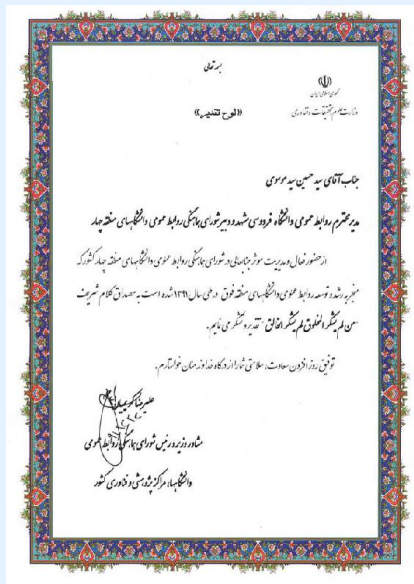 بسمه تعالی
جمهوری اسلامی ایران
وزارت علوم، تحقیقات و فناوری
«لوح تقدیر»
جناب آقای سید حسین سید موسوی
مدیر محترم روابط عمومی دانشگاه فردوسی مشهد و دبیر شورای هماهنگی روابط عمومی دانشگاههای منطقه چهار
از حضور فعال و مدیریت موثر جنابعالی در شورای هماهنگی روابط عمومی دانشگاههای منطقه چهار کشور که
منجر به رشد و توسعه روابط عمومی دانشگاههای منطقه فوق در طی سال ۱۳۹۱ شده است به مصداق کلام شریف
"من لم یشکر المخلوق لم یشکر الخالق" تقدیر و تشکر می نمایم.
توفیق روز افزون سعادت، سلامتی شما را از درگاه خداوند منان خواستارم.
مشاور وزیر و رئیس شورای هماهنگی روابط عمومی
دانشگاهها، مراکز پژوهشی و فناوری کشور